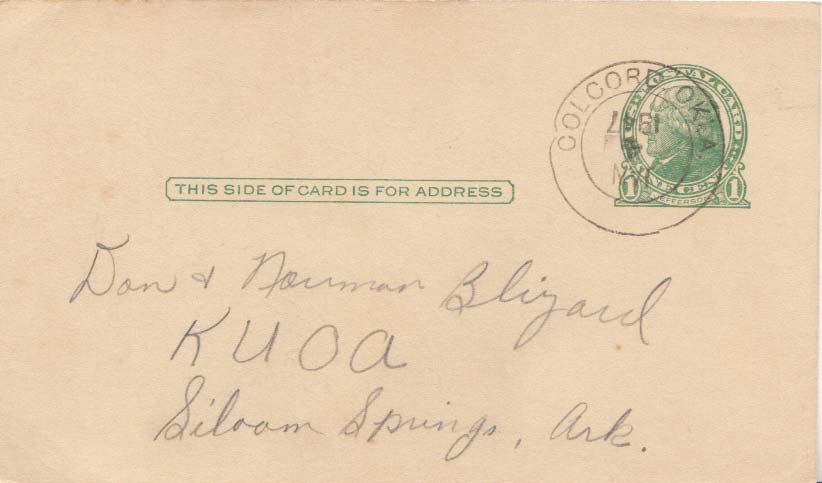 COLCORD OKLA
U.S. POSTAL CARD
1 JEFFERSON 1
THIS SIDE OF CARD IS FOR ADDRESS
Don & Norman Blizard
KUOA
Siloam Springs, Ark.